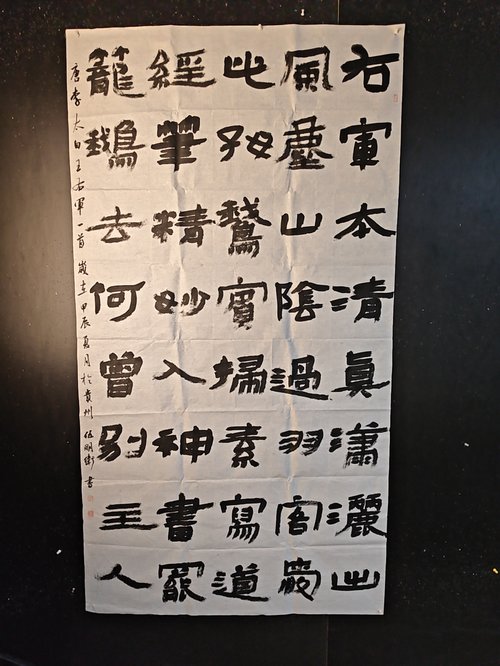 右軍本清眞瀟灑出
風塵山陰過羽客愛
此好鵞賓掃素寫道
經筆精妙入神書罷
籠鵝去何曾別主人
唐李太白王右軍一首歲在甲辰夏月於貴州伍明衛書